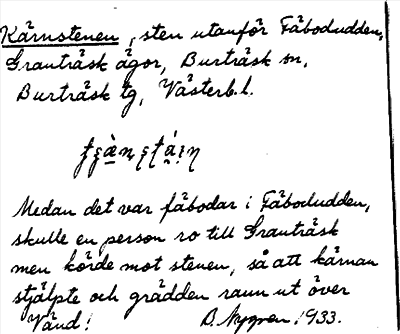 Kärnstenen, sten utanför Fäbodudden,
Granträsk ägor, Burträsk sn,
Burträsk tg, Västerb.l.
Medan det var fäbodar i Fäbodudden,
skulle en person ro till Granträsk
men körde mot stenen, så att kärnan
stjälpte och grädden rann ut över
Vänd! B. Nygren. 1933.